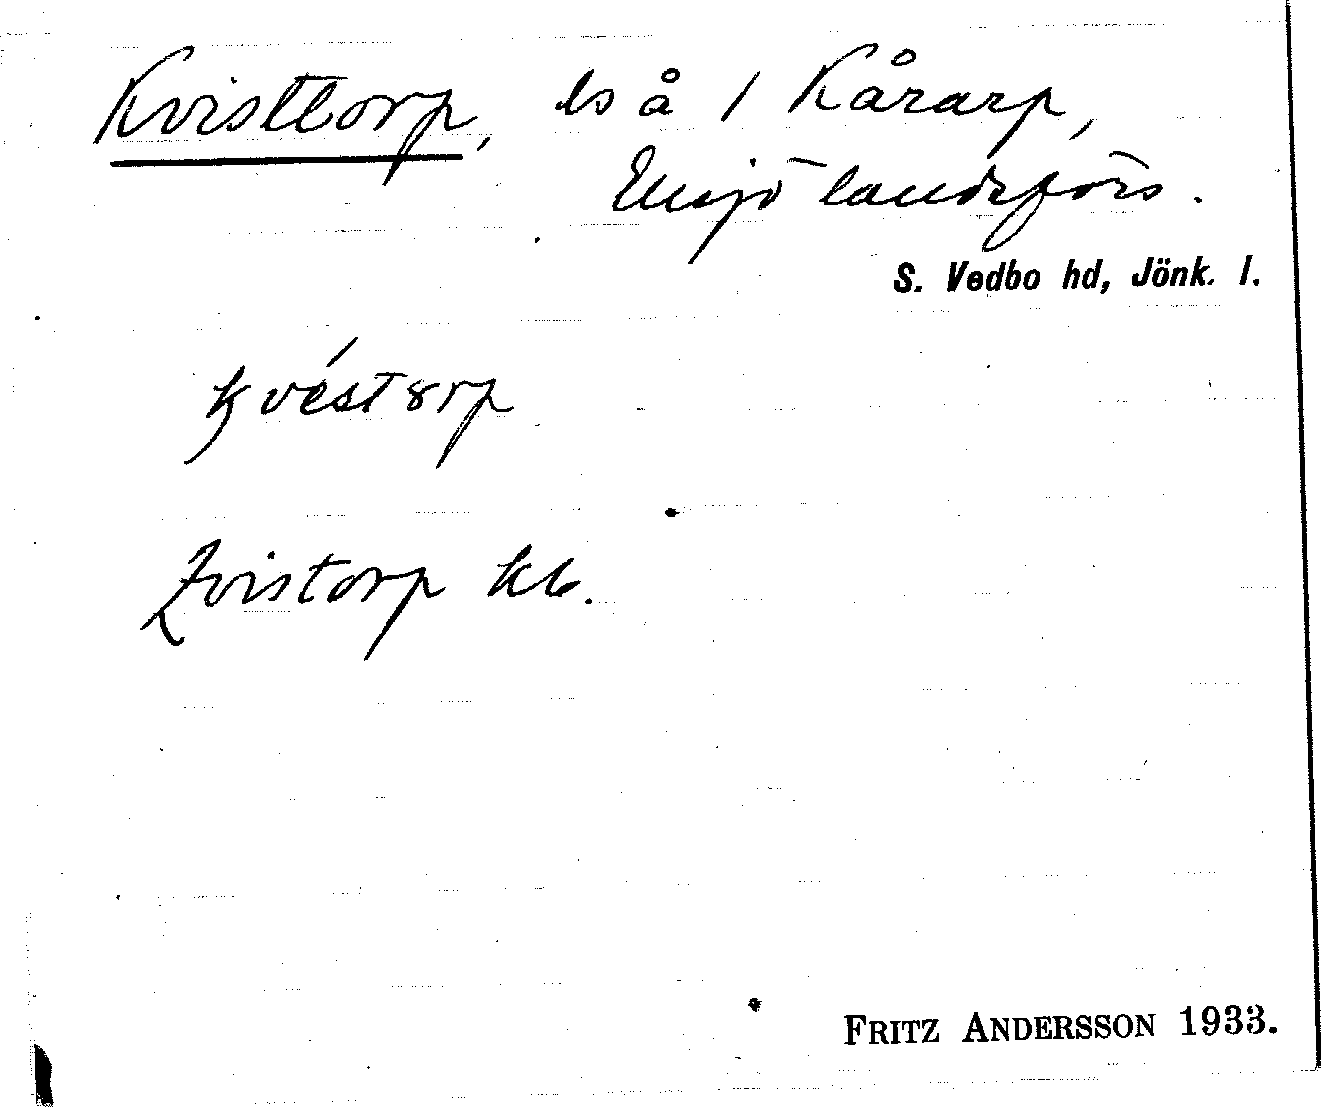 Kvisttorp, ls å 1 Kårarp,
Eksjö landsförs.
S. Vedbo hd, Jönk. l.
kvéstorp
Qvistorp kb.
FRITZ ANDERSSON 1933.